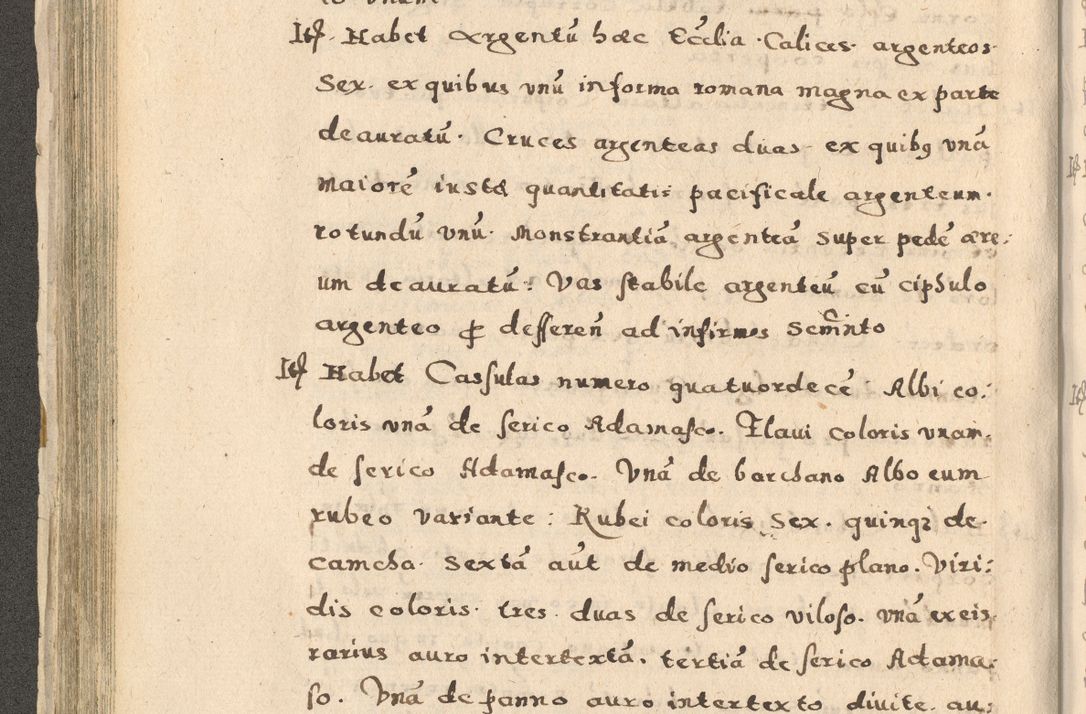 Itꝭ. Habet argentū hæc Eccl̃ia. Calices. argenteos
Sex. ex quibus vnū in forma romana magna ex parte
deauratū. Cruces argenteas duas. ex quibꝫ vnā
maiorē iustæ quantitatis: pacificale argenteum.
rotundū vnū. Monstrantiā argenteā super pedē ære:
um deauratū: Vas stabile argenteū cū cipsulo
argenteo ꝓ defferen̄ ad infirmos Scm̃nto
Itꝭ Habet Cassulas numero quatuordecē. Albi co:
loris vnā de serico Adamasco. Flaui coloris vnam.
de serico Adamasco. Vnā de barchano Albo cum
rubeo variante: Rubei coloris Sex. quinqꝫ de
camcha. Sextā aūt de medio serico plano. Viri:
dis coloris. tres duas de serico viloso. vnā ex eis,
rarius auro intertextā. tertiā de serico Adama:
so. Vnā de panno auro intertexto diuite. au: